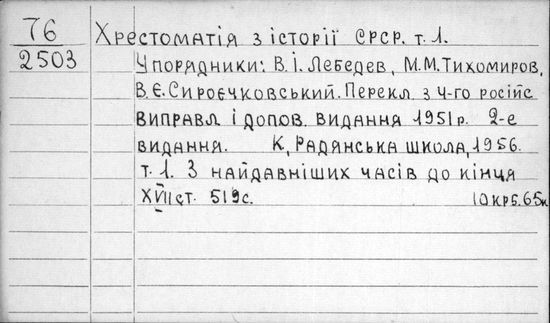 76
2503
Хрестоматія з історії СРСР. т. 1.
Упорядники: В.І. Лебедев, М.М. Тихомиров,
В.Є. Сироєчковський. Перекл. з 4-го російс
виправл. і допов. видання 1951 р. 2-е
видання. К, Радянська школа, 1956.
т. 1. З найдавніших часів до кінця
XVII ст. 519 с. 10 крб. 65 к